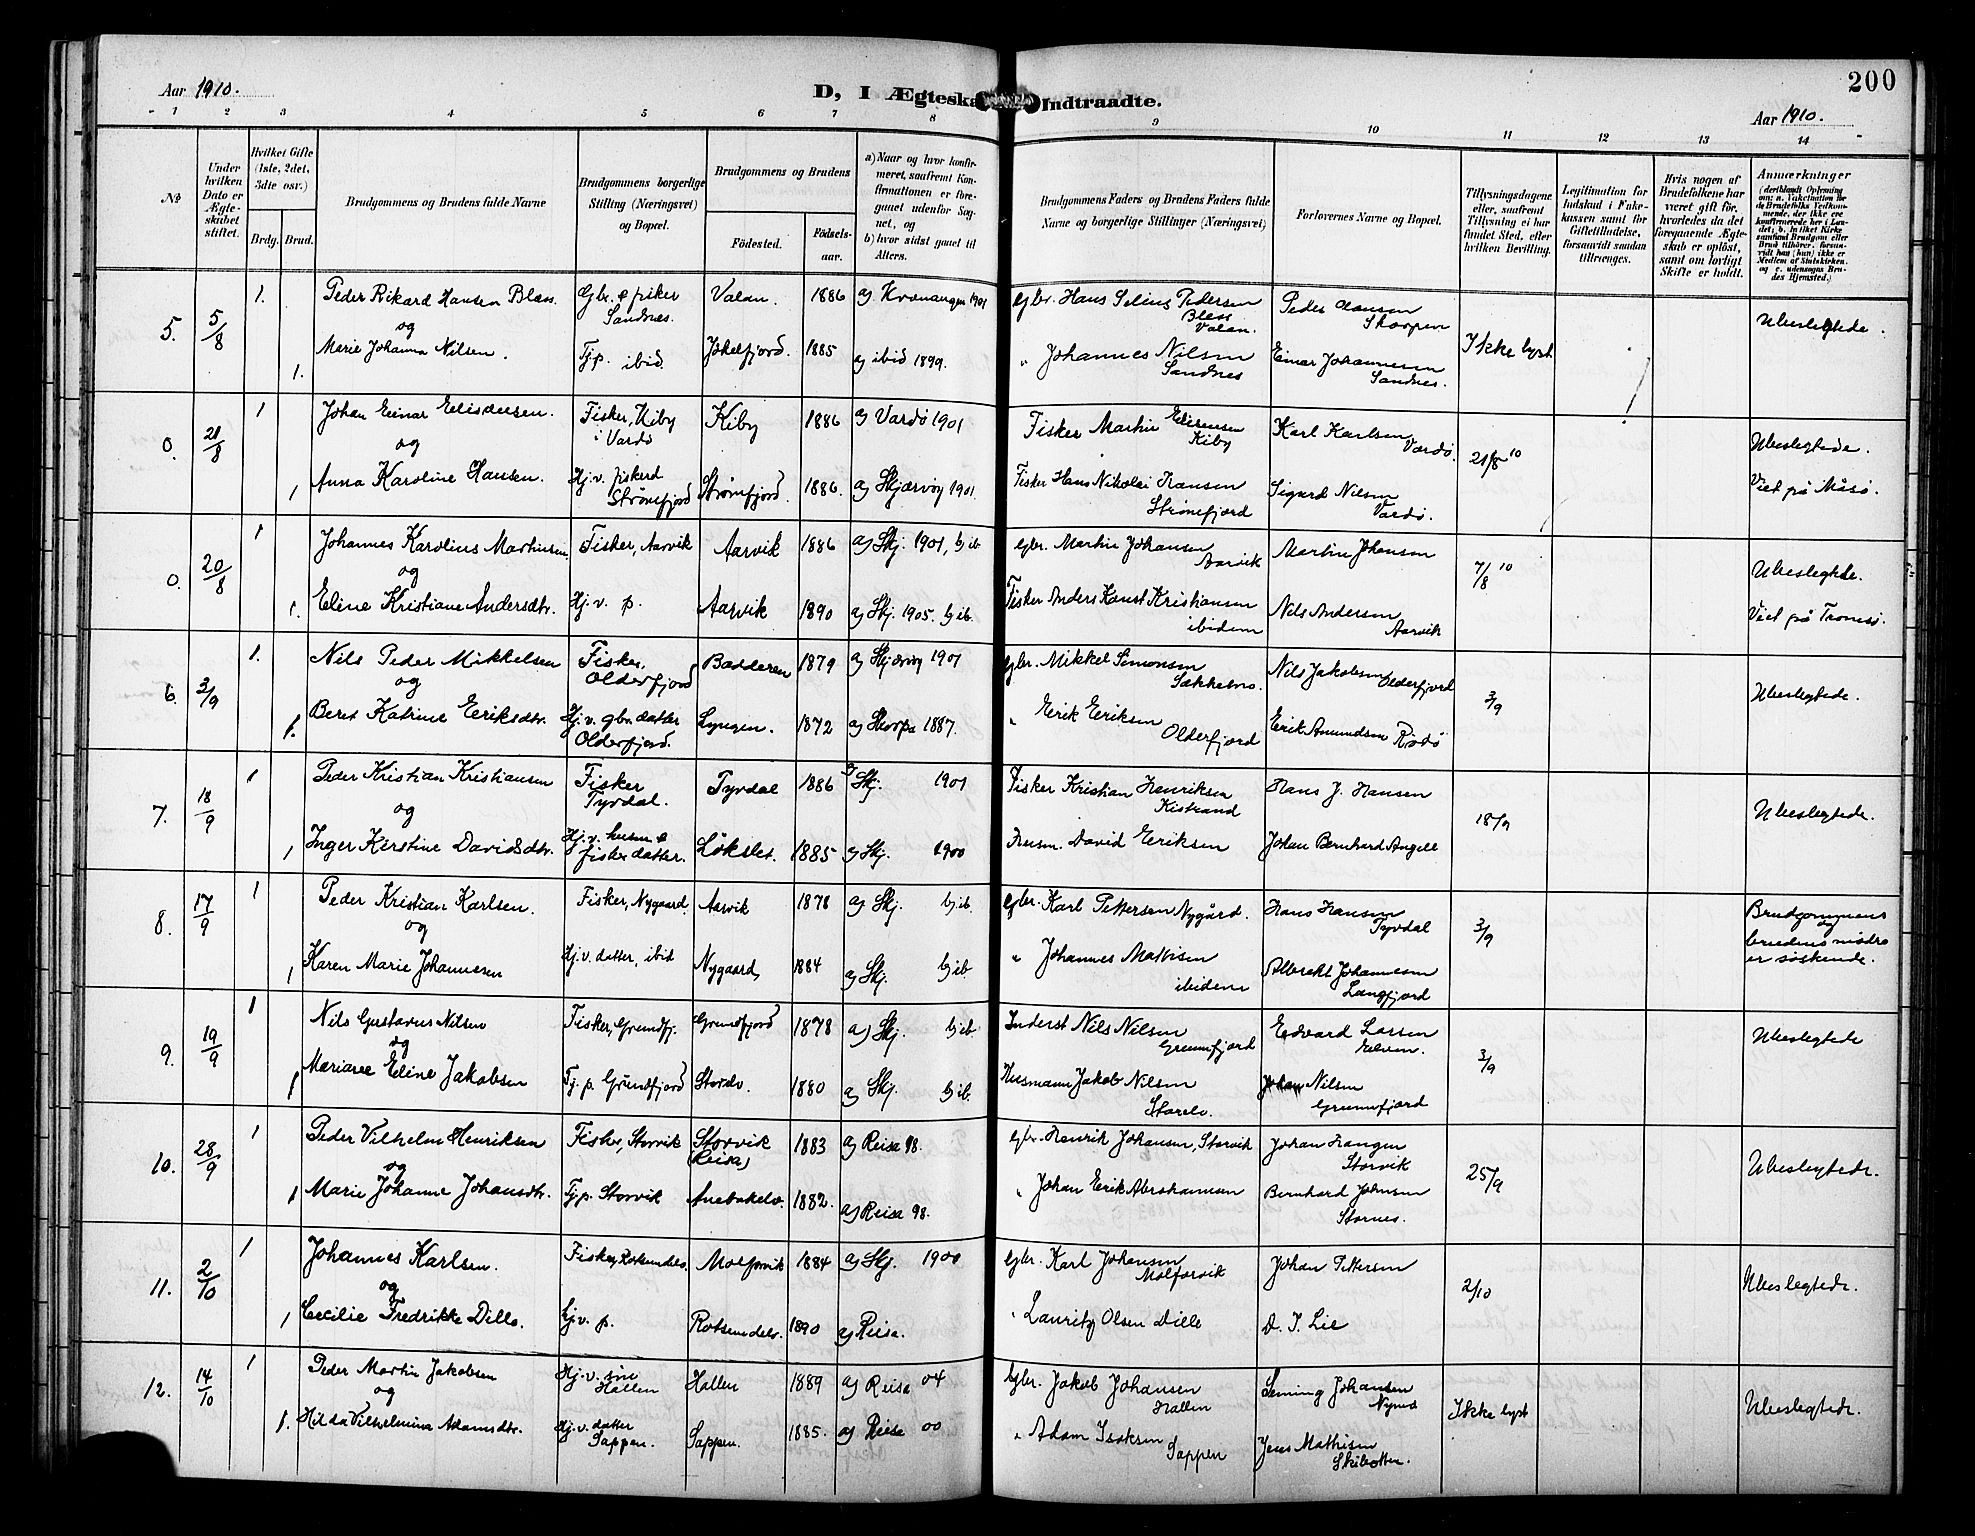 200
Aar 1910.
D, I Ægteska Indtraadte.
Aar 1910.
1 2 3 4 5 6 7 8 9 10 11 12 13 14
№
Under hvilken Dato er Ægteskabet stiftet.
Hvilket Gifte (1ste, 2det, 3dte osv.)
Brdg. Brud.
Brudgommens og Brudens fulde Navne
Brudgommens borgerlige Stilling (Næringsvei) og Bopæl.
Brudgommens og Brudens
Fødested.
Fødselsaar.
a) Naar og hvor konfirmeret, saafremt Konfirmationen er foregaaet udenfor Sognet, og
b) hvor sidst gaaet til Alters.
Brudgommens Faders og Brudens Faders fulde Navne og borgerlige Stillinger (Næringsvei)
Forlovernes Navne og Bopæl.
Tillysningsdagene eller, saafremt Tillysning ei har fundet Sted, efter hvilken Bevilling.
Legitimation for Indskud i Enkekassen samt for Giftetilladelse, forsaavidt saadan tiltrænges.
Hvis nogen af Brudefolkene har været gift før, hvorledes da det foregaaende Ægteskab er opløst, samt om lovligt Skifte er holdt.
Anmærkninger
5. 5/8 1. Peder Rikard Hansen Bless Gbr. & fisker Sandnes. Valan. 1886 a) Kvænangen 1901 Gbr. Hans Selius Pedersen Bless Valan. Peder Hansen Skorpen Ikke lyst Ubeslegtede.
og
1. Marie Johanna Nilsen. Tj.p. ibid. Jøkelfjord. 1885 a) ibid 1899. " Johannes Nilsen Sandnes Einar Johannesen Sandnes.
0. 21/8 1 Johan Einar Elisæusen. Fisker, Kiby i Vardø Kiby 1886 a) Vardø 1901 Fisker Martin Kiby Karl Karlsen Vardø. 21/8 10 Ubeslegtede.
og
1 Anna Karoline Hansen. Hj.v. fiskerd Strømfjord Strømfjord. 1886. a) Skjærvøy 1901. Fisker Hans Nikolai Hansen Strømfjord Sigurd Nilsen Vardø. Viet på Måsø.
0. 20/8 1 Johannes Karolius Martinsen Fisker, Aarvik Aarvik 1886 a) Skj. 1901, b) ib. Gbr. Martin Johansen Aarvik Martin Johansen 7/8 10 Ubeslegtede.
og
1. Eline Kristiane Andersdtr. Hj.v. p. Aarvik 1890 a) Skj. 1905. b) ib. Fisker Anders Kaust Kristiansen ibidem Nils Andersen Aarvik Viet på Tromsø.
6. 3/9 1. Nils Peder Mikkelsen Fisker. Olderfjord Badderen 1879 a) Skjærvøy 1901 Gbr. Mikkel Simonsen Nils Jakobsen Olderfjord 3/9 Ubeslegtede.
og
1. Beret Katrine Eriksdtr. Hj.v. gbr. datter Olderfjord. Lyngen. 1872 a) Skorpa 1887. " Erik Eriksen Olderfjord Erik Amundsen Rødø
7. 18/9 1 Peder Kristian Kristiansen Fisker Tyvdal. Tyvdal 1886 a) Skj. 1901 Fisker Kristian Henriksen Kistrand Hans J. Hansen 18/9 Ubeslegtede.
og
1 Inger Kerstine Davidsdtr. Hj.v. husm. & fisker datter. Løkslet. 1885 a) Skj. 1900 Husm. David Eriksen Johan Bernhard Angell
8. 17/9 1 Peder Kristian Karlsen. Fisker, Nygaard. Aarvik 1878 a) Skj. b) ib. Gbr. Karl Pettersen Nygård. Hans Hansen Tyvdal 3/9 Brudgommens og brudens mødre er søskende.
og
1 Karen Marie Johannesen Hj.v. datter, ibid Nygaard, 1884 a) Skj. b) ib " Johannes Mathisen ibidem Albrekt Johannesen Langfjord
9. 19/9 1 Nils Gustavus Nilsen Fisker, Grundfj. Grundfjord 1878 a) Skj. b) ib. Inderst Nils Nilsen Grunnfjord Edvard Larsen Elven. 3/9 Ubeslegtede
og
1 Mariane Eline Jakobsen Tj.p. Grundfjord Storelv. 1880 a) Skj. b) ib. Husmann Jakob Nilsen Storelv. Johan Nilsen Grunnfjord
10. 28/9 1 Peder Vilhelm Henriksen Fisker, Storvik Storvik (Reisa) 1883 a) Reisa 98. Gbr. Henrik Johansen, Storvik Johan Hangen Storvik 25/9 Ubeslegtede.
og
1 Marie Johanne Johansdtr. Tj.p. Storvik 1882. a) Reisa 98. " Johan Erik Abrahamsen Bernhard Johnsen Stornes.
11. 2/10 1 Johannes Karlsen. Fisker, Rotsundelv. Molforvik 1884 a) Skj. 1900 Gbr. Karl Johansen Molforvik Johan Pettersen 2/10 Ubeslegtede.
og
1 Cecilie Fredrikke Dille. Hj.v. p. Rotsundelv. 1890 a) Reisa. " Lauritz Olsen Dille D. I. Lie
12. 14/10 1 Peder Martin Jakobsen Hj.v. søn Hallen Hallen 1889 a) Reisa 04 Gbr. Jakob Johansen Hallen Leming Johansen Ikke lyst Ubeslegtede.
og
1. Hilda Vilhelmina Adamsdtr. Hj.v. datter Sappen. Sappen. 1885. a) Reisa 00 " Adam Isaksen Sappen Jens Mathisen Skibotten.